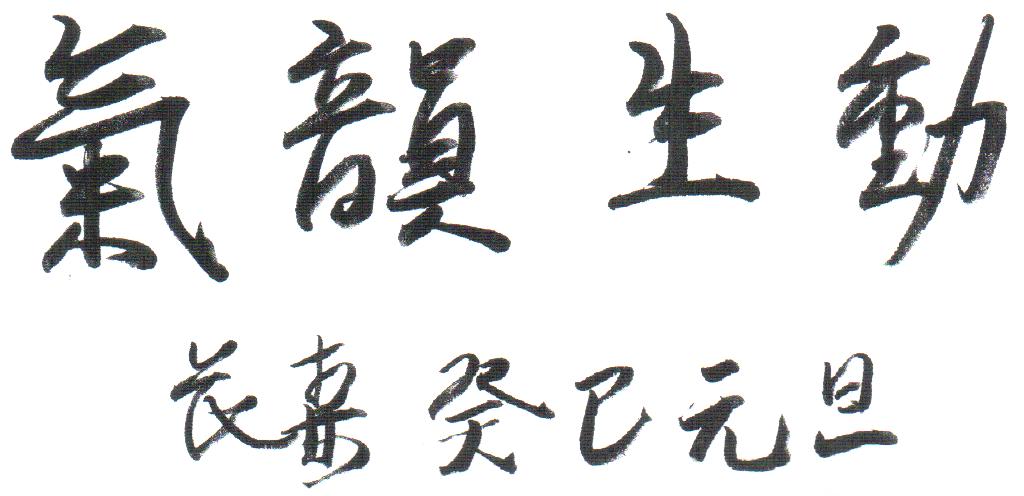 氣韻生動
癸巳元旦